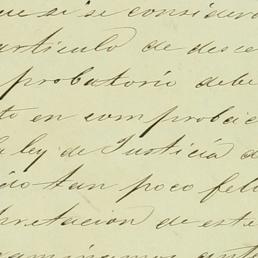 que si se considera
articulo de desce
probatorio debe
to en comprobaci
la ley de Justicia d
ido tan poco feli
pretacion de este
caminamos ante